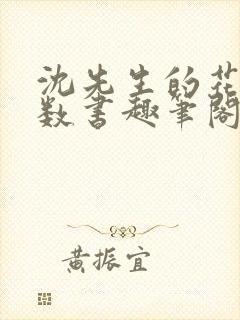 沈先生的花
数书趣笔阁
黄振宜